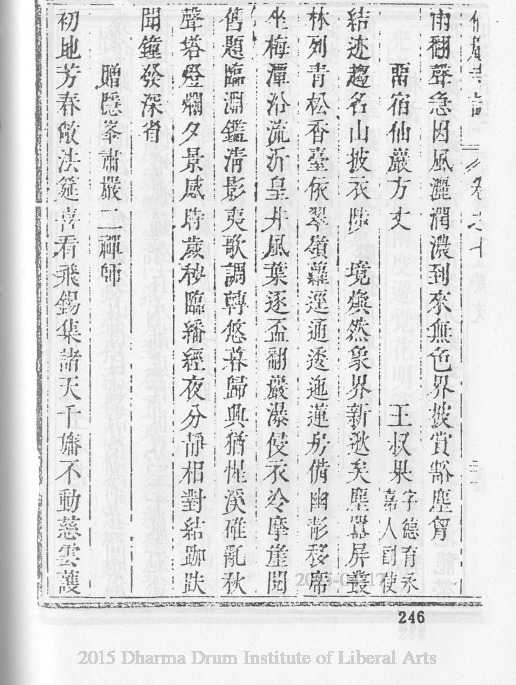 仙巖寺志 卷之十
雨翻聲急因風灑潤濃到來無色界披賞豁塵
再宿仙巖方丈
王叔杲字德育永嘉人副使
結遊趨名山披衣陟 境奐然象界新逖矣塵囂屏叢
林列青松香臺依翠嶺蘿逕通透迤蓮房備幽彭移席
坐梅潭沿流泝皇井風葉逐盃翻巖瀑侵衣冷摩崖閱
舊題臨淵鑑清影夷歌調轉悠暮歸興猶惺溪碓亂秋
聲塔燈爛夕景感時歲秒臨繙經夜分靜相對結跏趺
聞鐘發深省
贈隱峯肅嚴二禪師
初地芳春啟法筵喜看飛錫集諸天千旛不動慈雲護
246
2015 Dharma Drum Institute of Liberal Arts